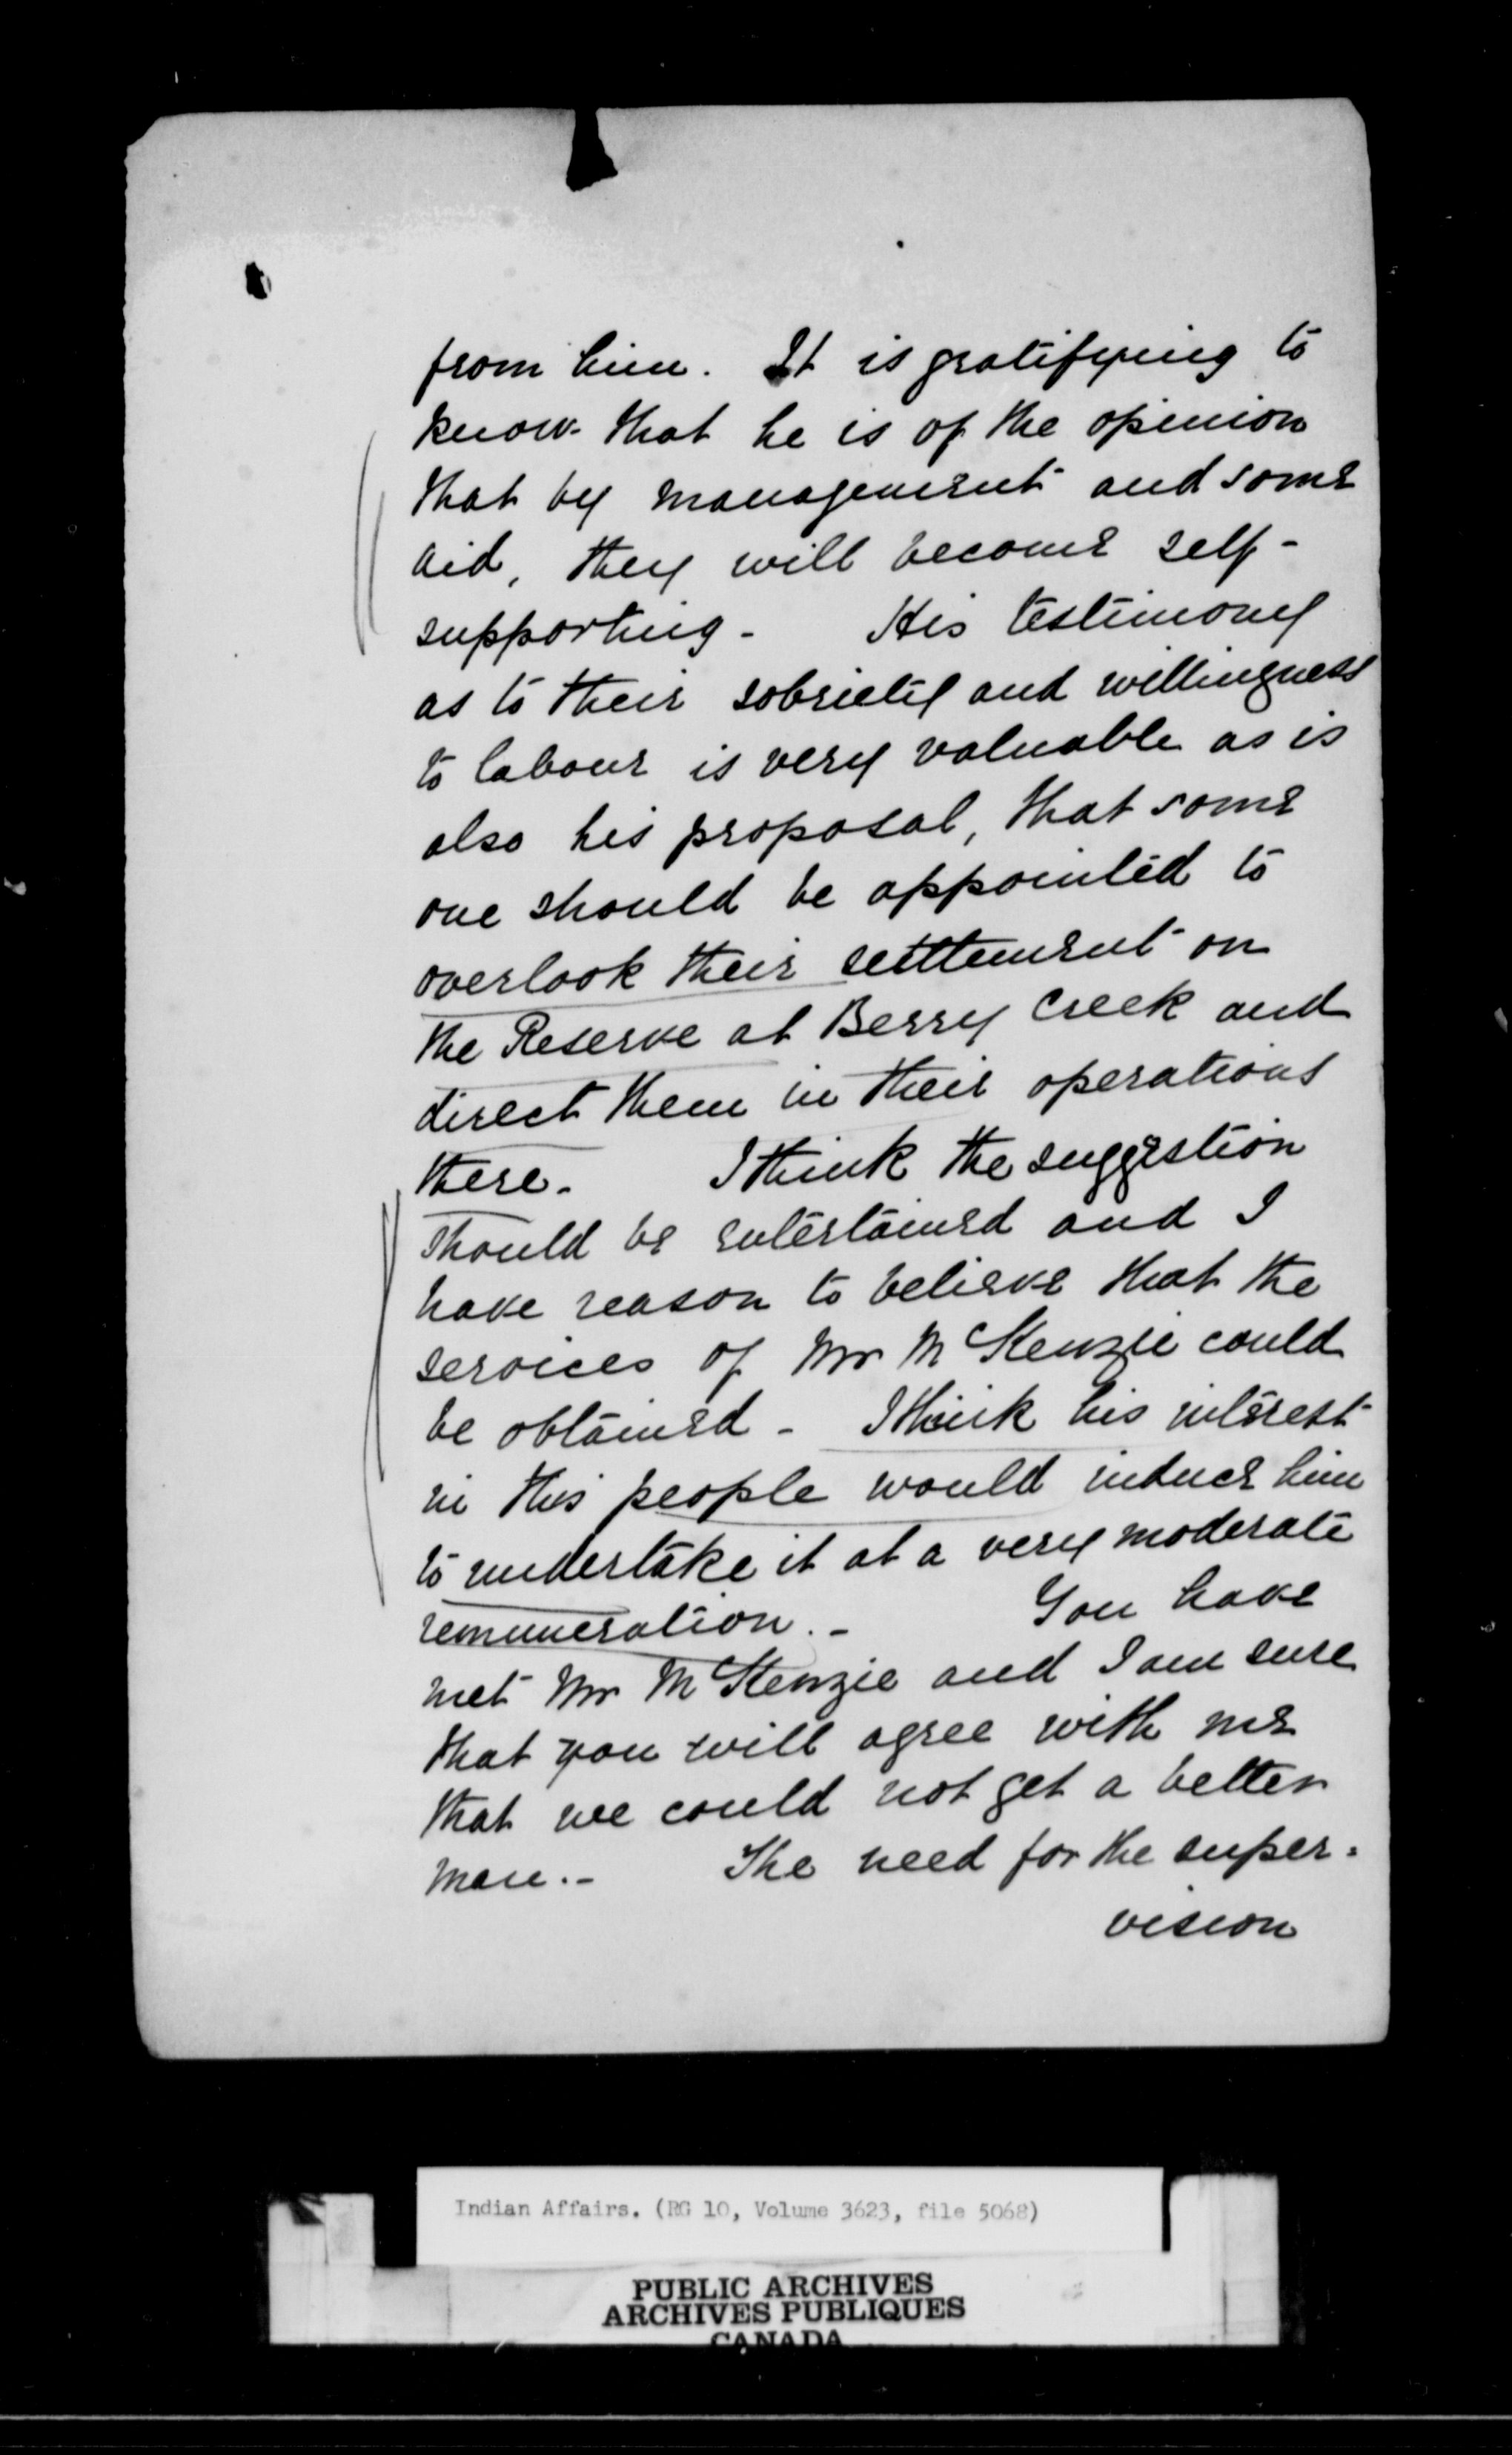 from him. It is gratifying to
know that he is of the opinion
that by management and some
aid, they will become self-
supporting - His testimony
as to their sobriety and willingness
to labour is very valuable as is
also his proposal, that some
one should be appointed to
overlook their settlement on
the Reserve at Berry Creek and
direct them in their operations
there. I think the suggestion
should be entertained and I
have reason to believe that the
services of Mr McKenzie could
be obtained - I think his interest
in this people would induce him
to undertake it at a very moderate
remuneration. - You have
met Mr McKenzie and I am sure
that you will agree with me
that we could not get a better
man. - The need for the super-
vision
Indian Affairs. (RG 10, Volume 3623, file 5068)
PUBLIC ARCHIVES
ARCHIVES PUBLIQUES
CANADA